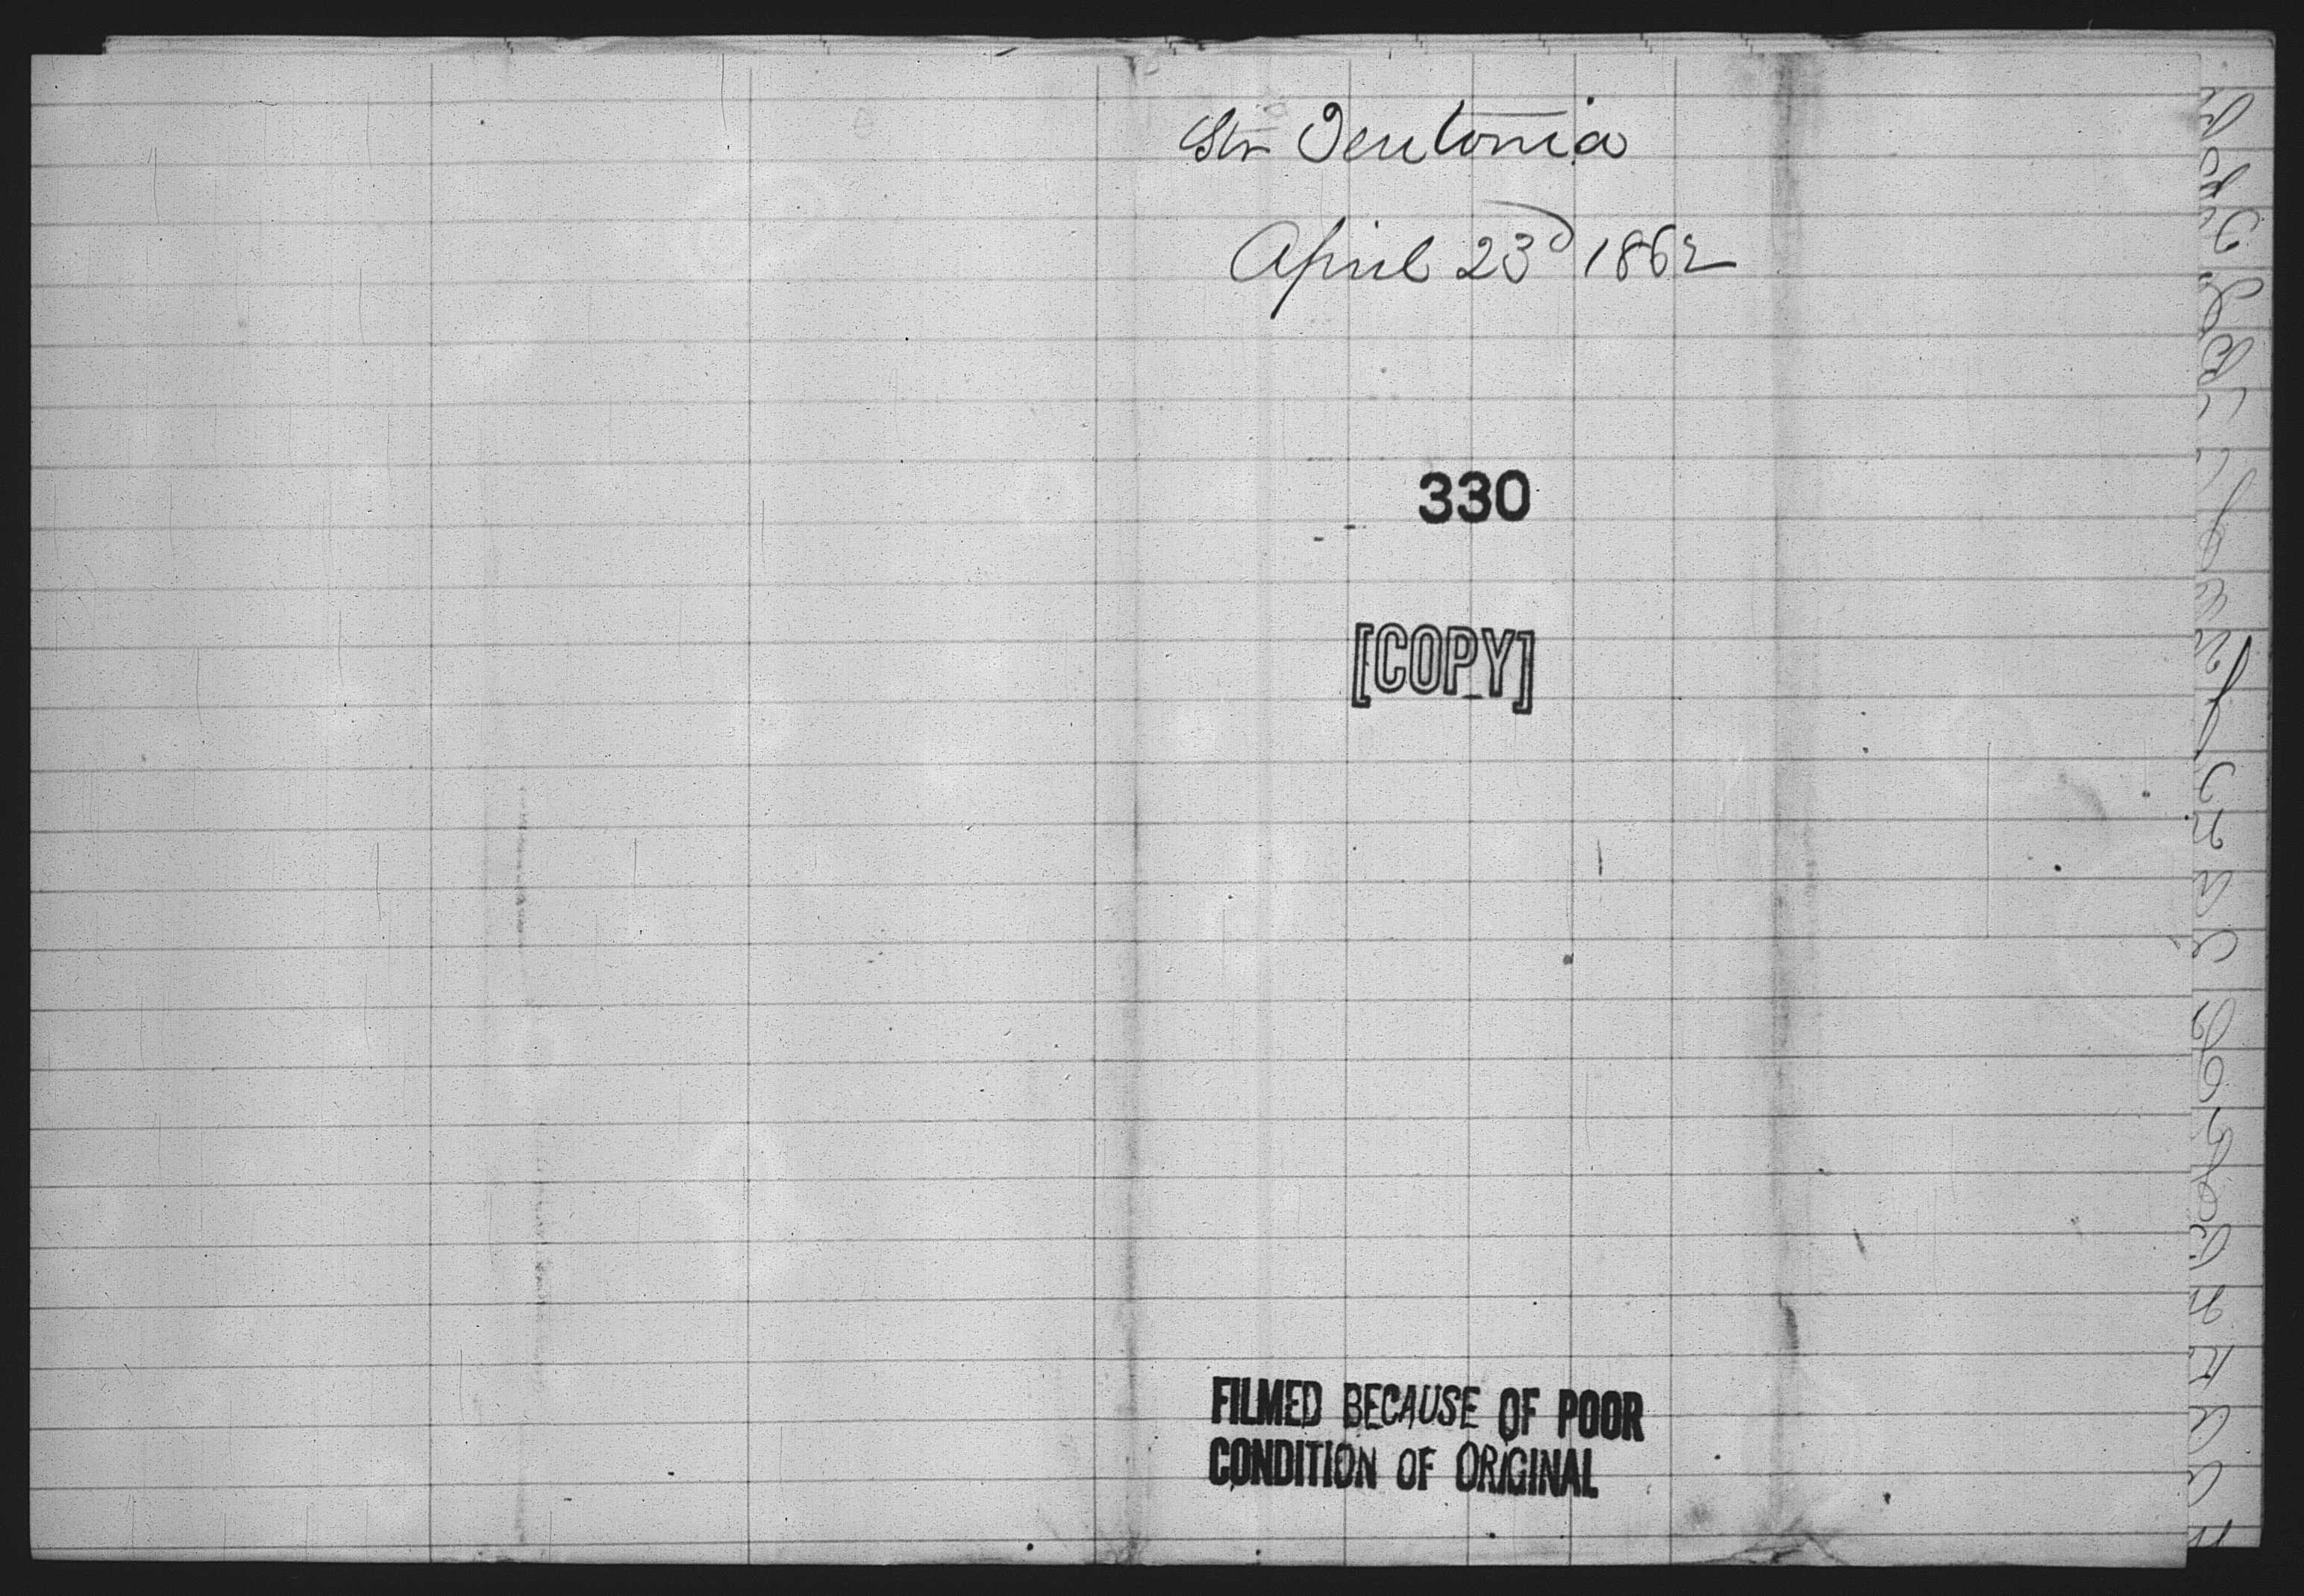 Str Teutonia
April 23d 1862
330
[COPY]
FILMED BECAUSE OF POOR
CONDITION OF ORIGINAL